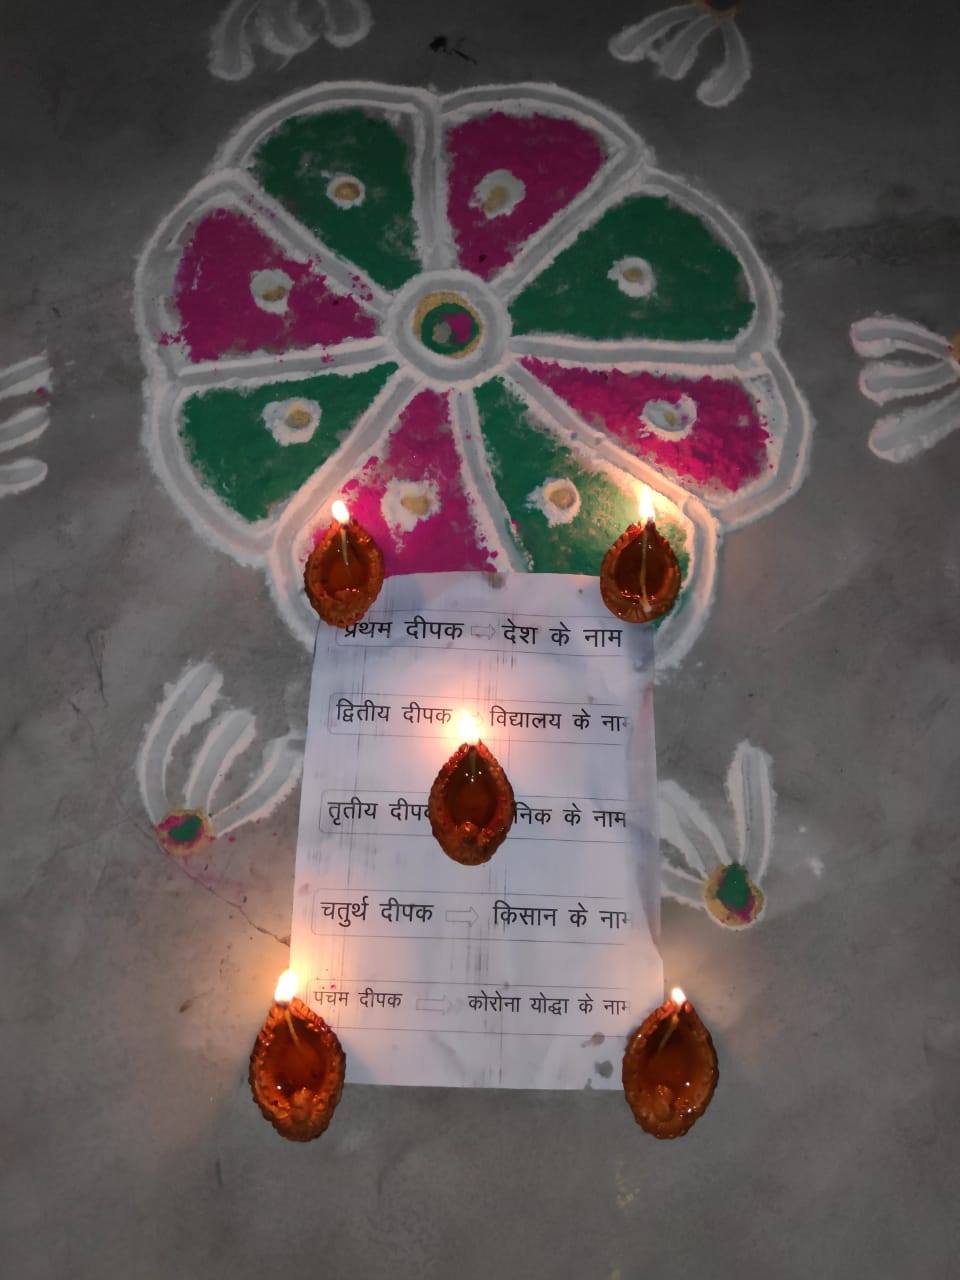 प्रथम दीपक ⇨ देश के नाम
द्वितीय दीपक विद्यालय के नाम
तृतीय दीपक के नाम
चतुर्थ दीपक ⇨ किसान के नाम
पंचम दीपक ⇨ कोरोना योद्धा के नाम